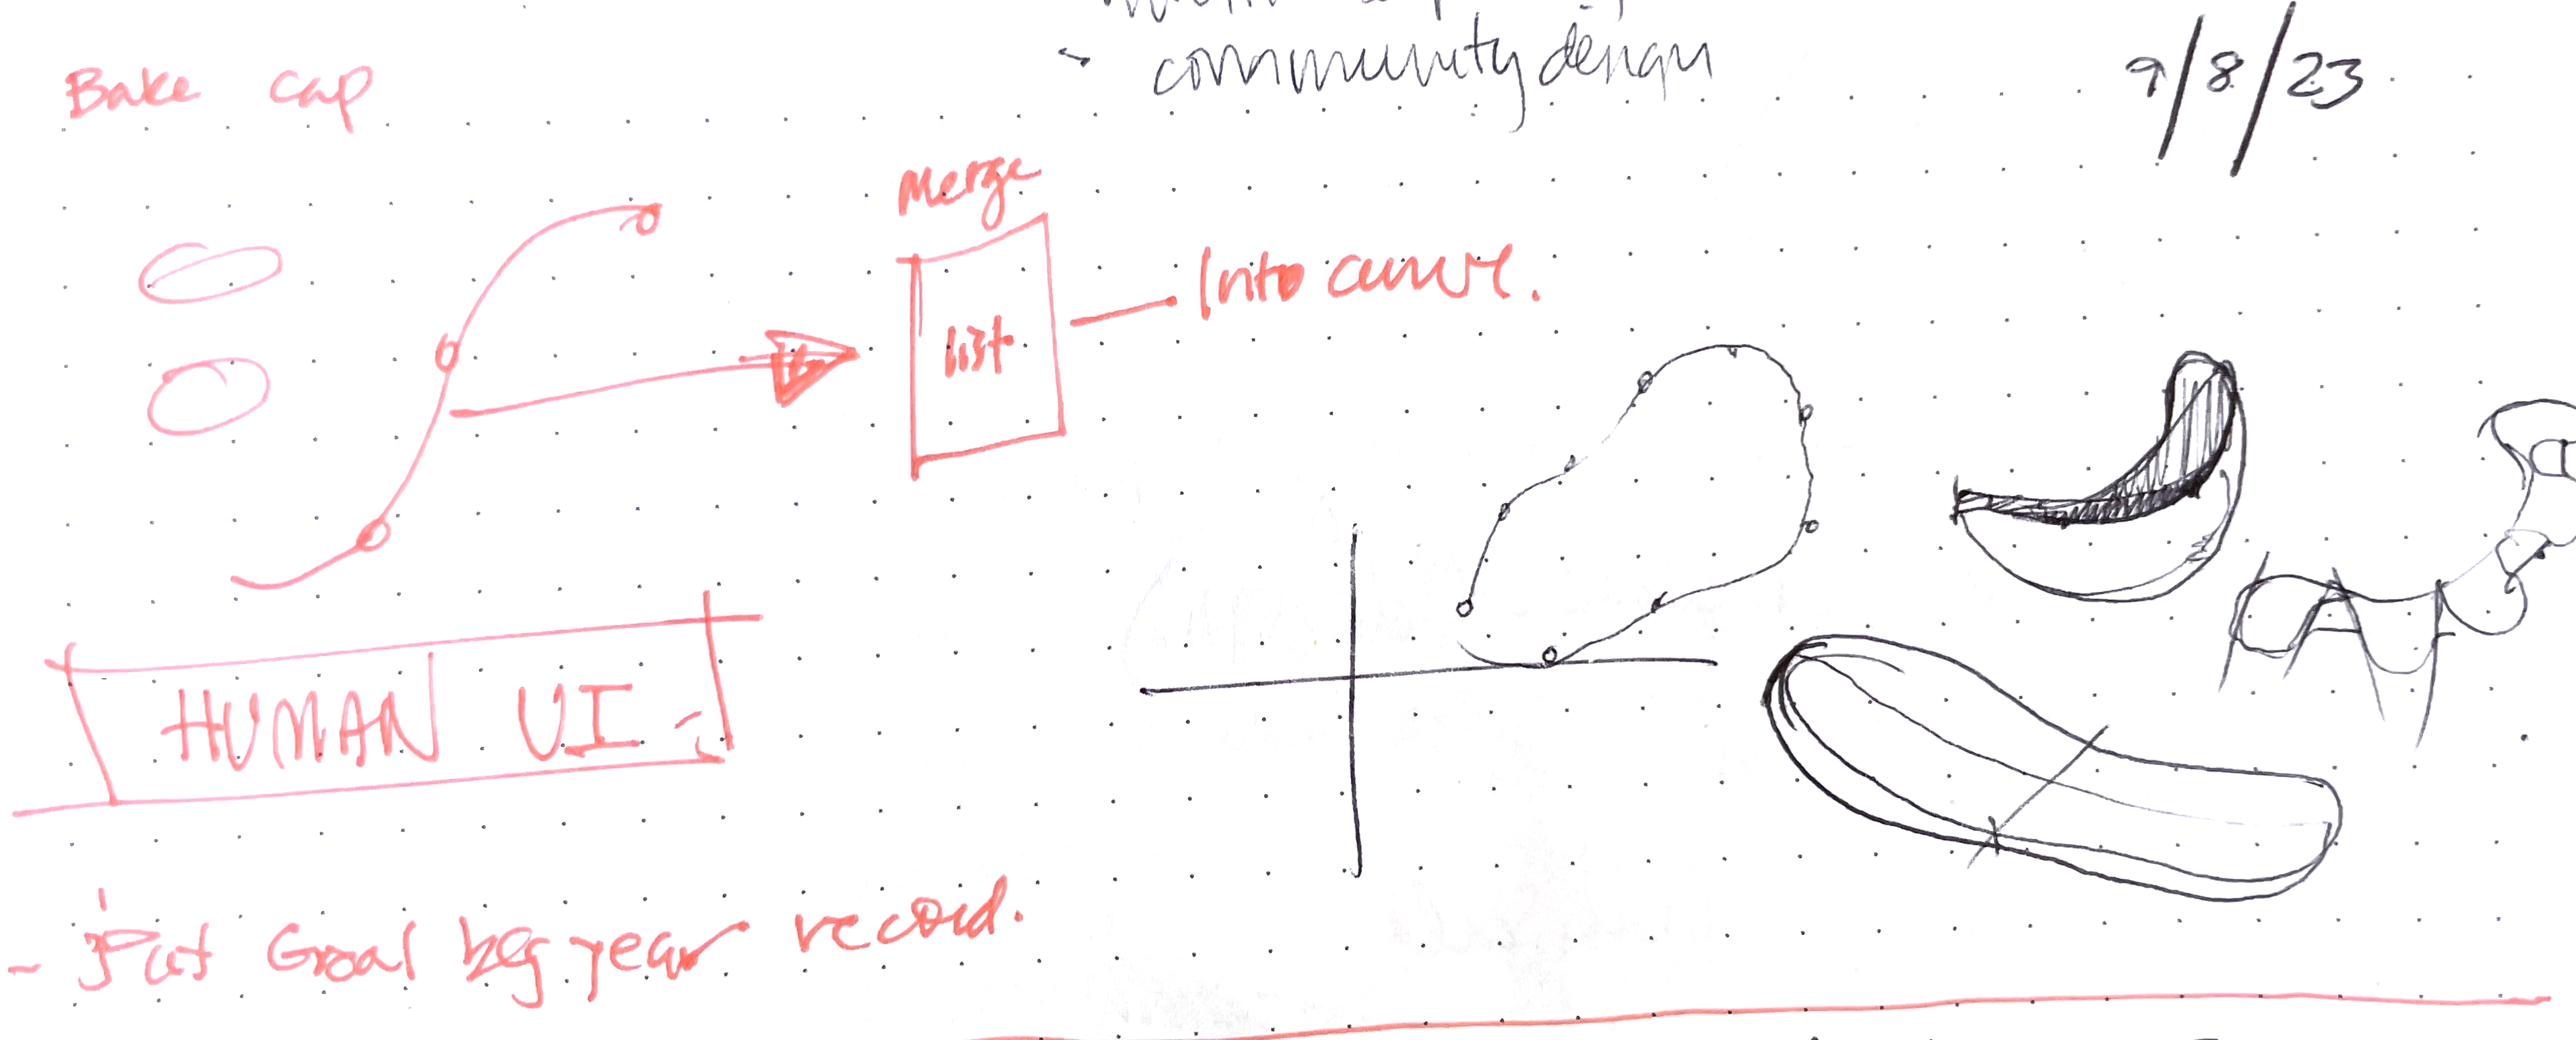 - community design
9/8/23
Bake cap
Merge
list
Into curve.
HUMAN UI
- Put Goal beg year record.